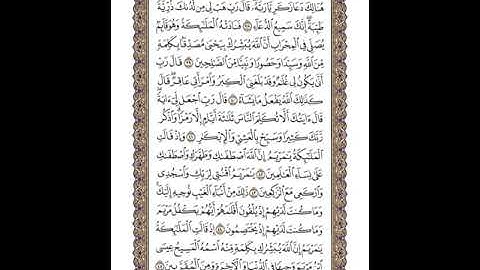 هُنَالِكَ دَعَا زَكَرِيَّا رَبَّهُۥ قَالَ رَبِّ هَبْ لِى مِن لَّدُنكَ ذُرِّيَّةً
طَيِّبَةً إِنَّكَ سَمِيعُ ٱلدُّعَآءِ ٣٨ فَنَادَتْهُ ٱلْمَلَٰٓئِكَةُ وَهُوَ قَآئِمٌ
يُصَلِّى فِى ٱلْمِحْرَابِ أَنَّ ٱللَّهَ يُبَشِّرُكَ بِيَحْيَىٰ مُصَدِّقًۢا بِكَلِمَةٍ
مِّنَ ٱللَّهِ وَسَيِّدًا وَحَصُورًا وَنَبِيًّا مِّنَ ٱلصَّٰلِحِينَ ٣٩ قَالَ رَبِّ
أَنَّىٰ يَكُونُ لِى غُلَٰمٌ وَقَدْ بَلَغَنِىَ ٱلْكِبَرُ وَٱمْرَأَتِى عَاقِرٌ قَالَ
كَذَٰلِكَ ٱللَّهُ يَفْعَلُ مَا يَشَآءُ ٤٠ قَالَ رَبِّ ٱجْعَل لِّىٓ ءَايَةً
قَالَ ءَايَتُكَ أَلَّا تُكَلِّمَ ٱلنَّاسَ ثَلَٰثَةَ أَيَّامٍ إِلَّا رَمْزًا وَٱذْكُر
رَّبَّكَ كَثِيرًا وَسَبِّحْ بِٱلْعَشِىِّ وَٱلْإِبْكَٰرِ ٤١ وَإِذْ قَالَتِ
ٱلْمَلَٰٓئِكَةُ يَٰمَرْيَمُ إِنَّ ٱللَّهَ ٱصْطَفَىٰكِ وَطَهَّرَكِ وَٱصْطَفَىٰكِ
عَلَىٰ نِسَآءِ ٱلْعَٰلَمِينَ ٤٢ يَٰمَرْيَمُ ٱقْنُتِى لِرَبِّكِ وَٱسْجُدِى
وَٱرْكَعِى مَعَ ٱلرَّٰكِعِينَ ٤٣ ذَٰلِكَ مِنْ أَنۢبَآءِ ٱلْغَيْبِ نُوحِيهِ إِلَيْكَ
وَمَا كُنتَ لَدَيْهِمْ إِذْ يُلْقُونَ أَقْلَٰمَهُمْ أَيُّهُمْ يَكْفُلُ مَرْيَمَ
وَمَا كُنتَ لَدَيْهِمْ إِذْ يَخْتَصِمُونَ ٤٤ إِذْ قَالَتِ ٱلْمَلَٰٓئِكَةُ
يَٰمَرْيَمُ إِنَّ ٱللَّهَ يُبَشِّرُكِ بِكَلِمَةٍ مِّنْهُ ٱسْمُهُ ٱلْمَسِيحُ عِيسَى
ٱبْنُ مَرْيَمَ وَجِيهًا فِى ٱلدُّنْيَا وَٱلْءَاخِرَةِ وَمِنَ ٱلْمُقَرَّبِينَ ٤٥